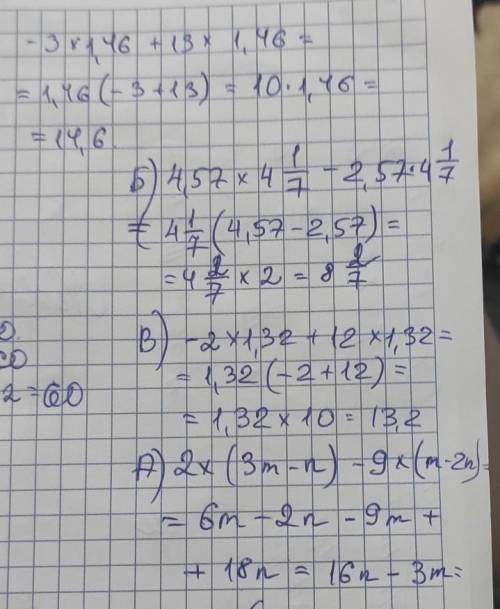 -3×1,46 + 13× 1,46 =
= 1,46(-3+13) = 10·1,46 =
= 14,6.
Б) 4,57 × 4 1/7 - 2,57·4 1/7
= 4 1/7 (4,57 - 2,57) =
= 4 2/7 × 2 = 8 2/7
В) -2×1,32 + 12 ×1,32 =
= 1,32 (-2 + 12) =
2 = 60
= 1,32 × 10 = 13,2
А) 2× (3m - n) - 9×(m-2n) =
= 6m - 2n - 9m +
+ 18n = 16n - 3m =